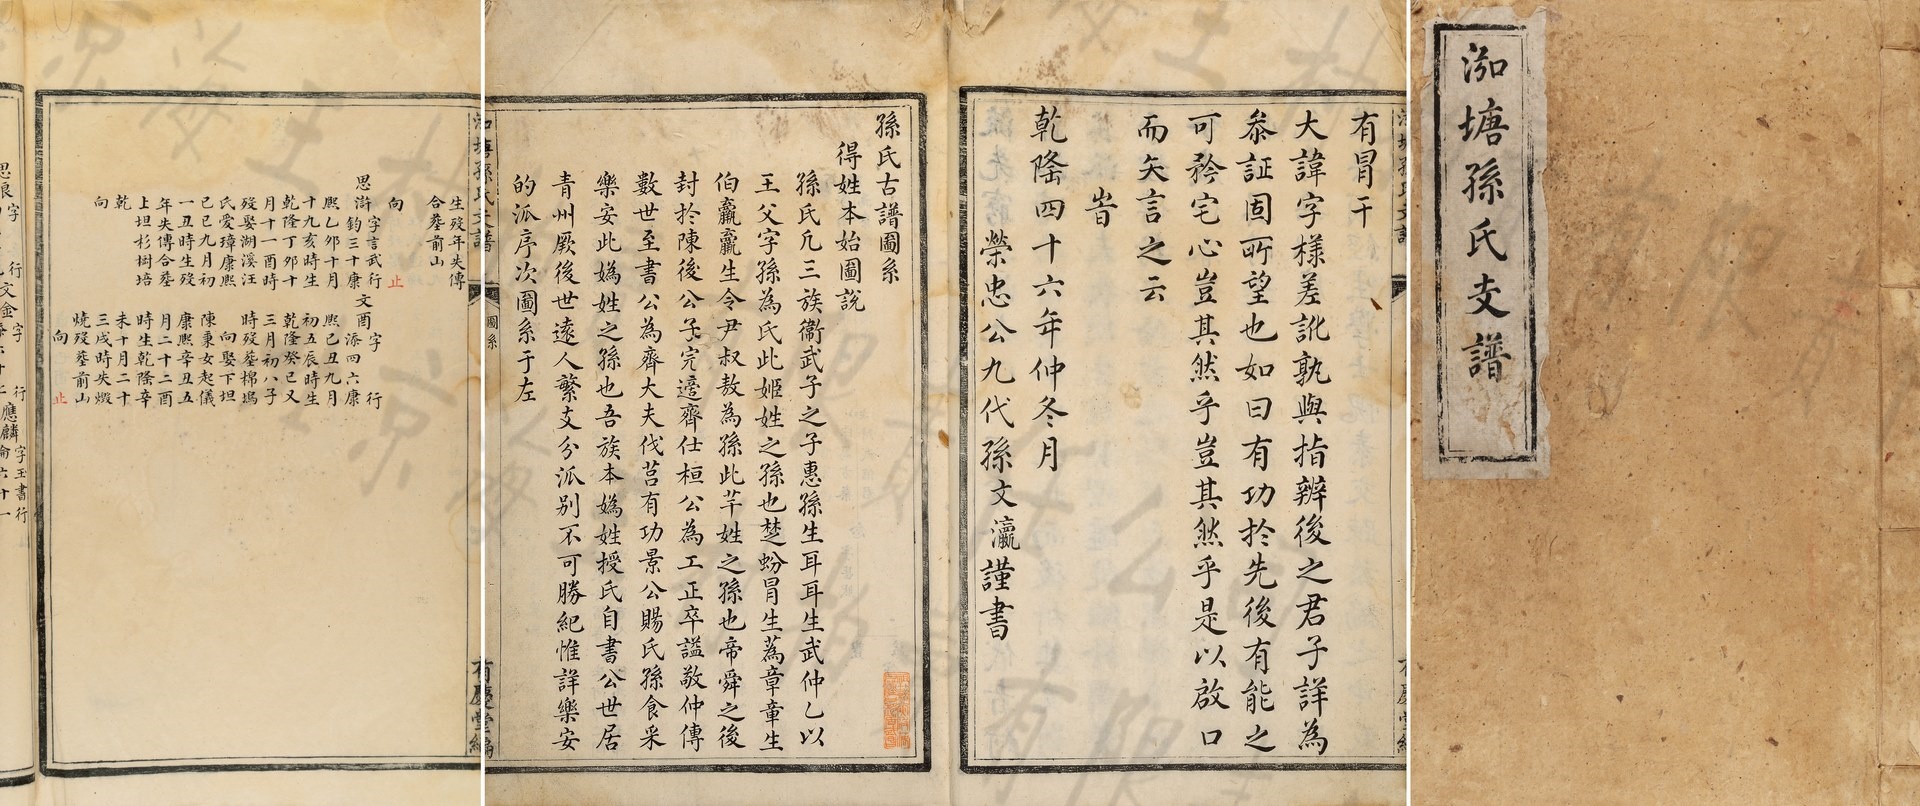 泖塘孫氏支譜
有冐干
大諱字樣差訛孰與指辨後之君子詳為
叅証固所望也如曰有功於先後有能之
可矜宅心豈其然乎豈其然乎是以啟口
而矢言之云
旹
乾隆四十六年仲冬月
榮忠公九代孫文瀛謹書
孫氏古譜圖系
得姓本始圖說
孫氏凢三族衞武子之子惠孫生耳耳生武仲乙以
王父字孫為氏此姬姓之孫也楚蚡冐生蒍章章生
伯嬴嬴生令尹叔敖為孫此芊姓之孫也帝舜之後
封於陳後公子完適齊仕桓公為工正卒謚敬仲傳
數世至書公為齊大夫伐莒有功景公賜氏孫食采
樂安此媯姓之孫也吾族本媯姓授氏自書公世居
青州厥後世遠人繁支分派別不可勝紀惟詳樂安
的派序次圖系于左
圖系
有慶堂編
生歿年失傳
合墓前山
向
止
思滸
字言武行
鈞三十康
熙乙夘十月
十九亥時生
乾隆丁夘十
月十一酉時
歿娶湖溪汪
氏愛璋康熙
己巳九月初
一丑時生歿
年失傳合墓
上坦杉樹培
乾
向
文酉
字 行
添四六康
熙己丑九月
初五辰時生
乾隆癸巳又
三月初八子
時歿墓棉塢
向娶下坦
陳秉女起儀
康熙辛丑五
月二十二酉
時生乾隆辛
未十月二十
三戌時失燬
燒歿墓前山
向
止